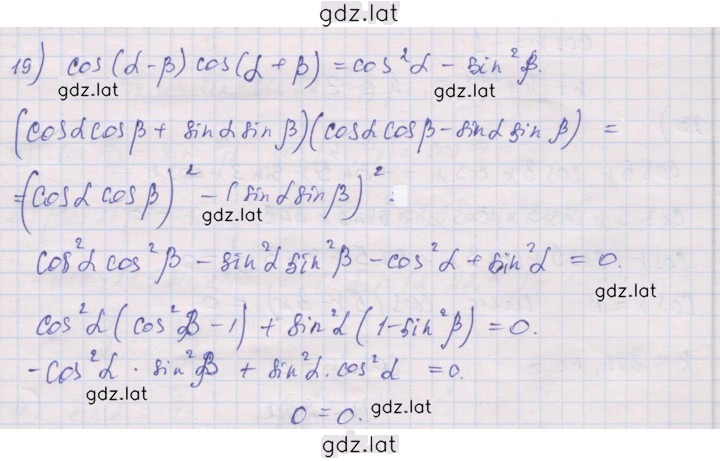 gdz.lat
19) cos(α-β) cos(α+β) = cos²α - sin²β.
gdz.lat gdz.lat
(cosα cosβ + sinα sinβ)(cosα cosβ - sinα sin β) =
=(cosα cosβ)² - (sinα sinβ)² =
gdz.lat
cos²α cos²β - sin²α sin²β - cos²α + sin²α = 0.
gdz.lat
cos²α(cos²β - 1) + sin²α(1 - sin²β) = 0.
-cos²α · sin²β + sin²α · cos²α = 0.
gdz.lat
0 = 0. gdz.lat
gdz.lat